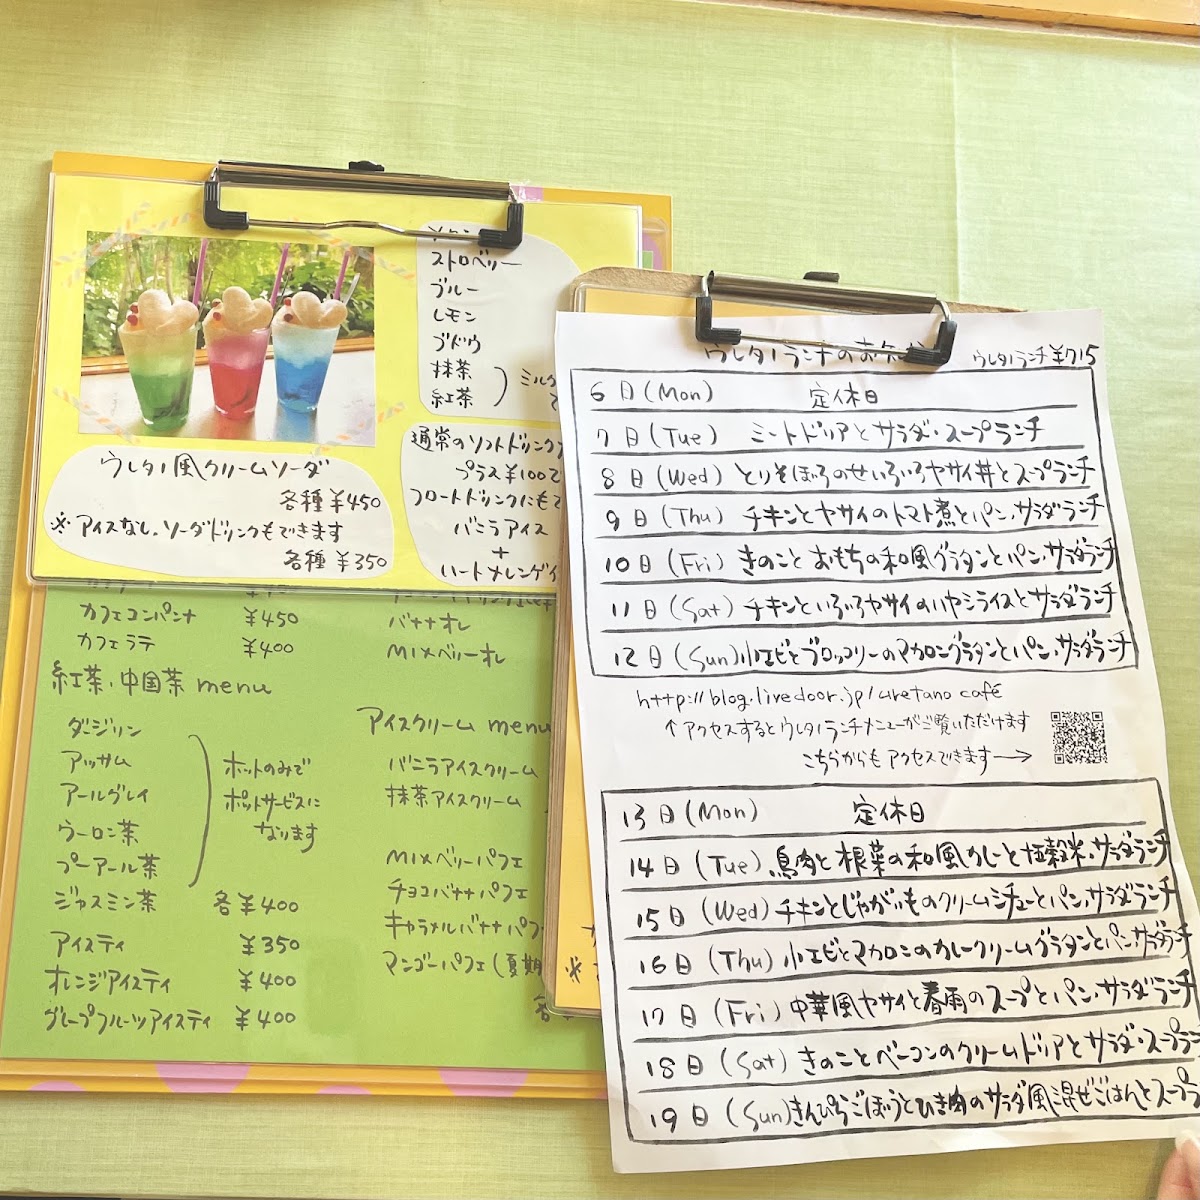 ストロベリー
ブルー
レモン
ブドウ
抹茶
紅茶
ミルク
ウレタノ風クリームソーダ
各種¥450
※アイスなし。ソーダドリンクもできます
各種¥350
通常のソフトドリンク
プラス¥100で
フロートドリンクにもで
バニラアイス
+
ハートメレンゲ
カフェコンパンナ ¥450
カフェラテ ¥400
紅茶、中国茶 menu
ダージリン
アッサム
アールグレイ
ウーロン茶
プーアール茶
ホットのみで
ポットサービスに
なります
ジャスミン茶 各¥400
アイスティ ¥350
オレンジアイスティ ¥400
グレープフルーツアイスティ ¥400
バナナオレ
MIXベリーオレ
アイスクリーム menu
バニラアイスクリーム
抹茶アイスクリーム
MIXベリーパフェ
チョコバナナパフェ
キャラメルバナナパフ
マンゴーパフェ(夏期
ウレタノランチのお知 ウレタノランチ¥715
6日(Mon) 定休日
7日(Tue) ミートドリアとサラダ・スープランチ
8日(Wed) とりそぼろのせいろいろヤサイ丼とスープランチ
9日(Thu) チキンとヤサイのトマト煮とパン、サラダランチ
10日(Fri) きのことおもちの和風グラタンとパン、サラダランチ
11日(Sat) チキンといろいろヤサイのハヤシライスとサラダランチ
12日(Sun) 小エビとブロッコリーのマカロングラタンとパン、サラダランチ
http://blog.livedoor.jp/uretano café
↑アクセスするとウレタノランチメニューがご覧いただけます
こちらからもアクセスできます→
13日(Mon) 定休日
14日(Tue) 鳥肉と根菜の和風カレーと五穀米、サラダランチ
15日(Wed) チキンとじゃがいものクリームシチューとパン、サラダランチ
16日(Thu) 小エビとマカロニのカレークリームグラタンとパン、サラダランチ
17日(Fri) 中華風ヤサイと春雨のスープとパン、サラダランチ
18日(Sat) きのことベーコンのクリームドリアとサラダ・スープラン
19日(Sun) きんぴらごぼうとひき肉のサラダ風混ぜごはんとスープラ